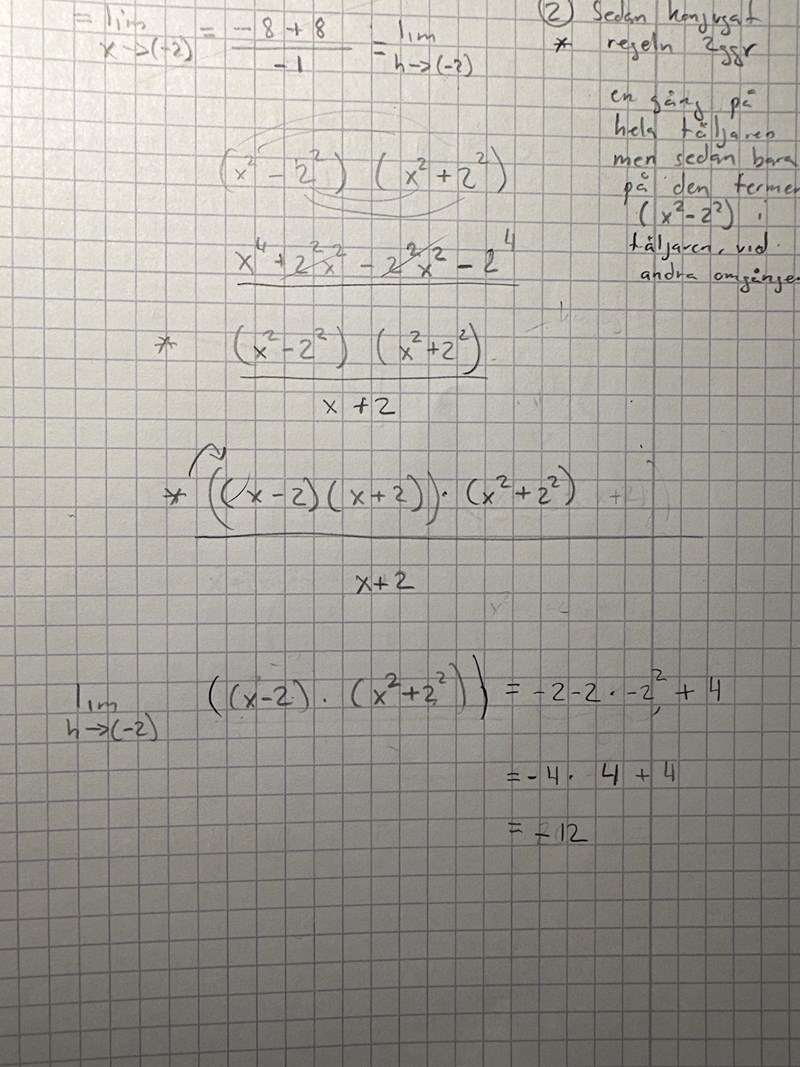 = lim x→(-2) = (-8+8)/(-1) = lim h→(-2)
② Sedan konjugat
* regeln 2ggr
en gång på
hela täljaren
men sedan bara
på den termen
(x²-2²) i
täljaren, vid
andra omgången
(x² - 2²) (x² + 2²)
x⁴ + 2²x² - 2²x² - 2⁴
* (x² - 2²) (x² + 2²)
x + 2
* ((x-2)(x+2)) · (x² + 2²)
x + 2
lim h→(-2) ((x-2) · (x² + 2²)) = -2-2 · -2² + 4
= -4 · 4 + 4
= -12